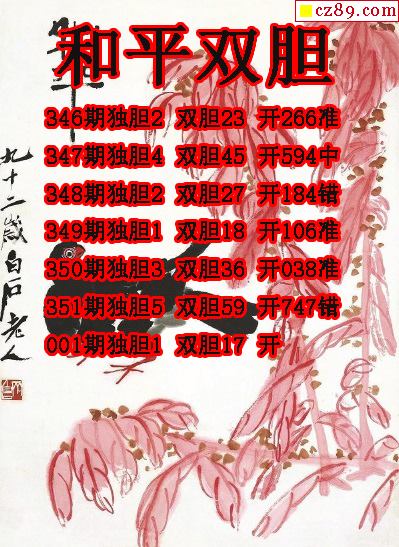 cz89.com
和平双胆
346期独胆2 双胆23 开266准
347期独胆4 双胆45 开594中
348期独胆2 双胆27 开184错
349期独胆1 双胆18 开106准
350期独胆3 双胆36 开038准
351期独胆5 双胆59 开747错
001期独胆1 双胆17 开
九十二岁白石老人